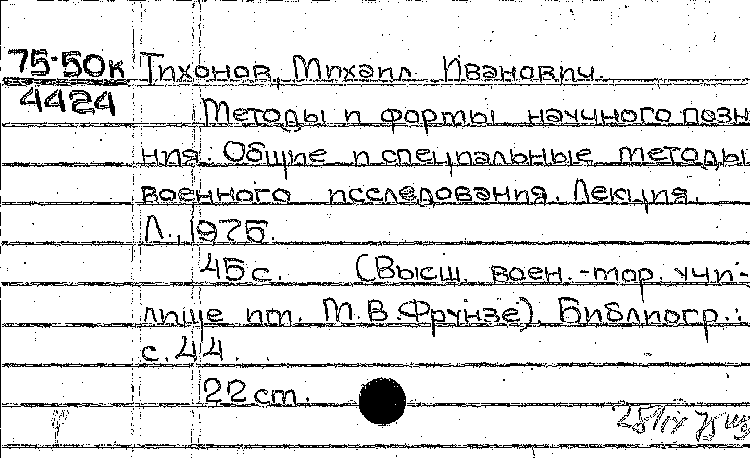 75-50к Тихонов, Михаил Иванович.
4424
Методы и формы научного позн
ния. Общие и специальные методы
военного исследования. Лекция.
Л., 1975.
45 с. (Высш. воен.-мор. учи-
лище им. М.В.Фрунзе). Библиогр.:
с. 44.
22 см.